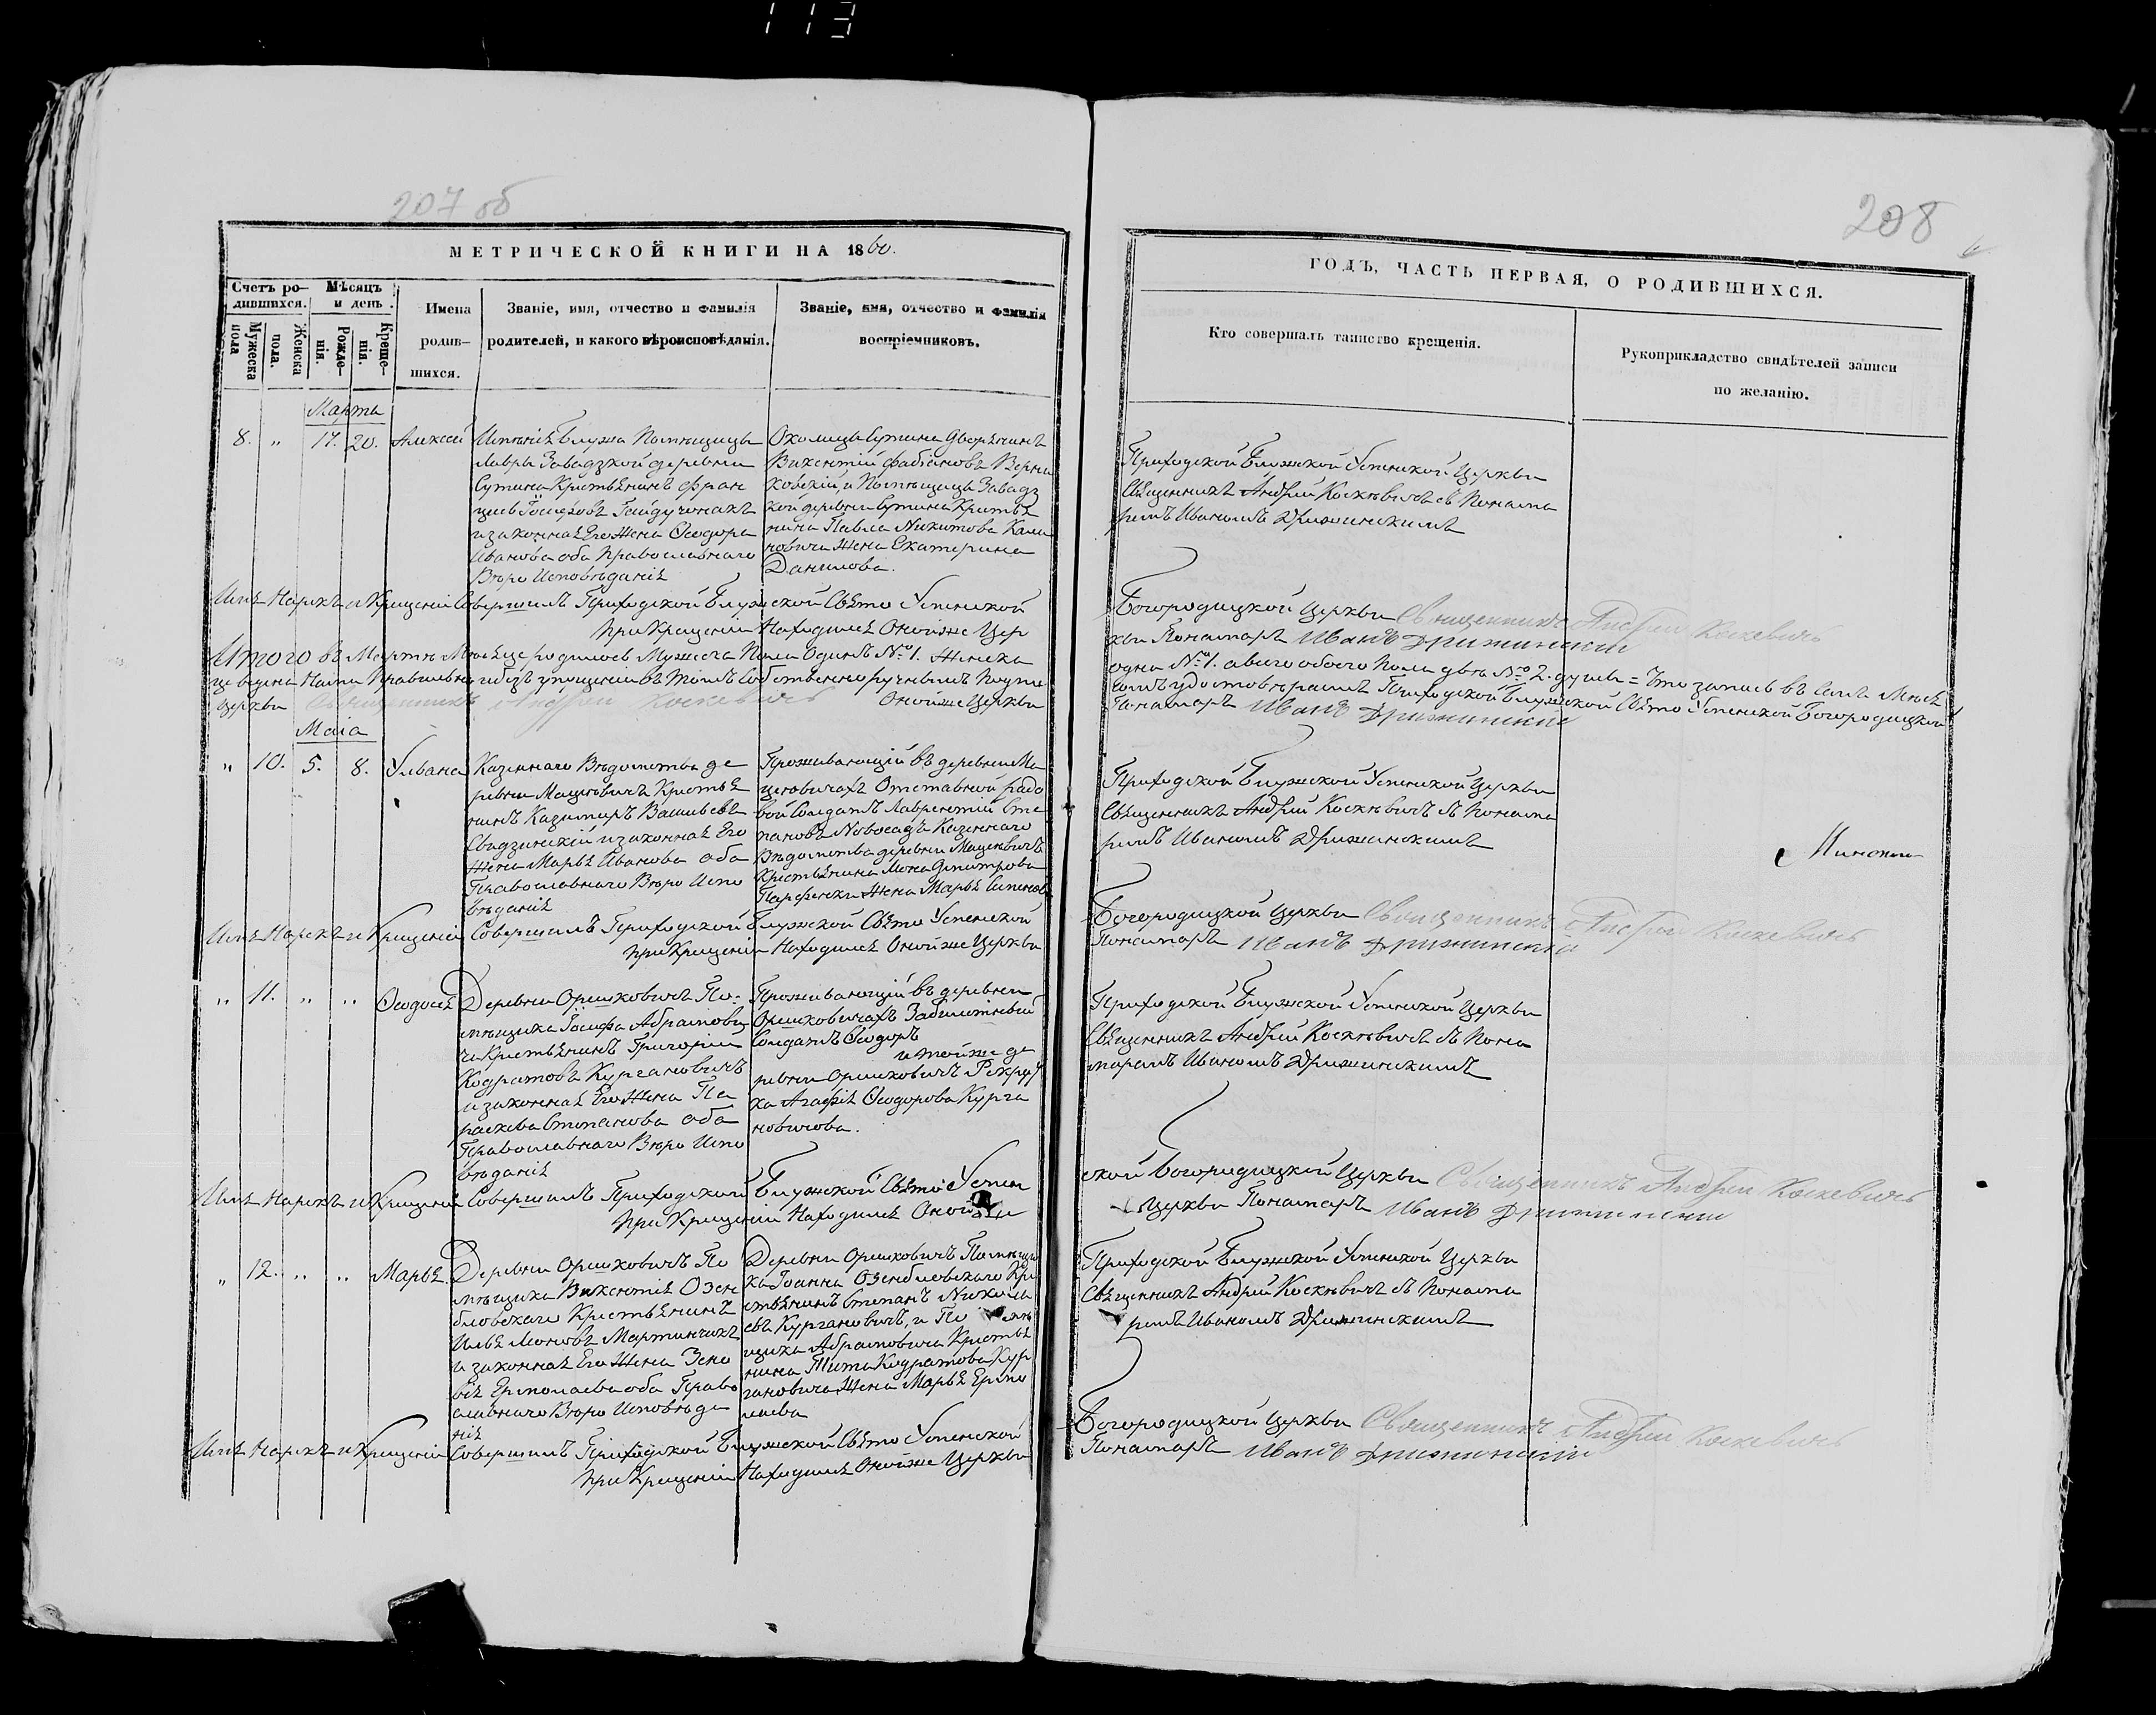 113
207 об
МЕТРИЧЕСКОЙ КНИГИ НА 1860.
Счетъ ро-
дившихся.
Мѣсяцъ
и день
Мужеска
пола
Женска
пола.
Рожде-
нія.
Креще-
нія.
Имена
родив-
шихся.
Званіе, имя, отчество и фамилія
родителей, и какого вѣроисповѣданія.
Званіе, имя, отчество и фамилія
воспріемниковъ.
Марта
8. „ 17. 20. Алексѣй
Имѣнія Блужа Помѣщицы
Лавры Завадзкой деревни
Сутина Крестьянинъ Фран
цевъ Іосифовъ Гайдучонакъ
и законная Его Жена Ѳеодора
Иванова оба православнаго
Вѣро Исповѣданія
Околицы Сутина Дворянинъ
Викентій Фабіановъ Верни
ковскій, и Помѣщицы Завадз
кой деревни Сутина Крестья
нина Павла Никитова Кали
новича Жена Екатерина
Данилова.
Имя Нарекъ и Крещеніе Совершилъ Приходской Блужской Свято Успенской
при Крещеніи Находился Онойже Цер
Итого въ Мартѣ Мѣсяце родилось Мужеска Пола Одинъ №1. Женска
це ведена Нами Правильно и безъ упущеній въ томъ Собственноручнымъ подпи
Церкви Священникъ Андрей Коскевичъ Онойже Церкви
Маія
„ 10. 5. 8. Ульяна
Казеннаго Вѣдомства де
ревни Мацевичъ Крестья
нинъ Казимиръ Васильевъ
Свидзинскій и законная Его
Жена Марья Иванова оба
Православнаго Вѣро Испо
вѣданія
Проживающій въ деревни Ма
цевичахъ Отставный рядо
вой Солдатъ Лаврентій Сте
пановъ Новосадъ Казеннаго
Вѣдомства деревни Мацевичъ
Крестьянина Мона Дмитрова
Парфенки Жена Марья Семенов
Имя Нарекъ и Крещеніе Совершилъ Приходской Блужской Свято Успенской
при Крещеніи Находился Онойже Церкви
„ 11. „ „ Ѳеодосія
Деревни Орешковичъ По-
мѣщика Іосифа Абрамови
ча Крестьянинъ Григорій
Кодратовъ Кургановичъ
и законная Его Жена Па
раскева Степанова оба
Православнаго Вѣро Испо
вѣданія
Проживающій въ деревни
Орешковичахъ Забилетный
Солдатъ Ѳеодоръ
и тойже де
ревни Орешковичъ Рекрут
ка Агафія Ѳеодорова Курга
новичова.
Имя Нарекъ и Крещеніе Совершилъ Приходской Блужской Свято Успен
при Крещеніи Находился Онойже
„ 12. „ „ Марья
Деревни Орешковичъ По
мѣщика Викентія Озем
бловскаго Крестьянинъ
Илья Леоновъ Мартинчикъ
и законная Его Жена Зено
вія Ермолаева оба Право
славнаго Вѣро Исповѣда
нія
Деревни Орешковичъ Помѣщи
ка Іоанна Оземблевскаго Кре
стьянинъ Степанъ Никола
евъ Кургановичъ, и По мѣ
щика Абрамовича Крестья
нина Тита Кодратова Кур
гановича Жена Марья Ермо
лаева
Имя Нарекъ и Крещеніе Совершилъ Приходской Блужской Свято Успенской
при Крещеніи Находился Онойже Церкви
208
ГОДЪ, ЧАСТЬ ПЕРВАЯ, О РОДИВШИХСЯ.
Кто совершалъ таинство крещенія.
Рукоприкладство свидѣтелей записи
по желанію.
Приходской Блужской Успенской Церкви
Священникъ Андрей Коскевичъ съ Понама
ремъ Иваномъ Дрижинскимъ
Богородицкой Церкви Священникъ Андрей Коскевичъ
кви Понамарь Иванъ Дрижинскій
одна №1. а всего обоего пола двѣ №2. души = Что запись въ семъ Мѣся
сомъ удостовѣряемъ Приходской Блужской Свято Успенской Богородицкой
Понамарь Иванъ Дрижинскій
Приходской Блужской Успенской Церкви
Священникъ Андрей Коскевичъ съ Понама
ремъ Иваномъ Дрижинскимъ
Богородицкой Церкви Священникъ Андрей Коскевичъ
Понамарь Иванъ Дрижинскій
Приходской Блужской Успенской Церкви
Священникъ Андрей Коскевичъ съ Пона
маремъ Иваномъ Дрижинскимъ
ской Богородицкой Церкви Священникъ Андрей Коскевичъ
Церкви Понамарь Иванъ Дрижинскій
Приходской Блужской Успенской Церкви
Священникъ Андрей Коскевичъ съ Понама
ремъ Иваномъ Дрижинскимъ
Богородицкой Церкви Священникъ Андрей Коскевичъ
Понамарь Иванъ Дрижинскій